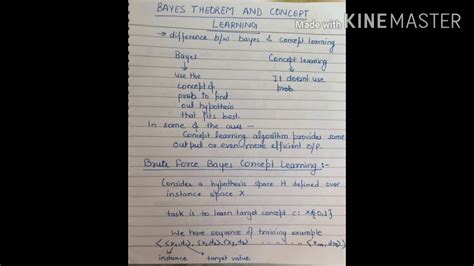 BAYES THEOREM AND CONCEPT
LEARNING
Made with KINEMASTER
→ difference b/w bayes & concept learning
Bayes Concept Learning
use the It doesnt use
concept of prob.
prob to find
out hypothesis
that fits best.
In some of the cases -
Concept learning algorithm provides same
output or even more efficient O/P.
Brute Force Bayes Concept Learning :-
Consider a hypothesis space H defined over
instance space X
task is to learn target concept c: X{0,1}
We have sequence of training example
instance target value